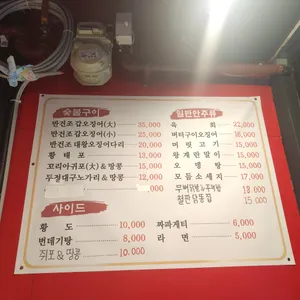 숯불구이
반건조 갑오징어(大) - 35,000
반건조 갑오징어(小) - 25,000
반건조 대왕오징어다리 - 20,000
황 태 포 - 13,000
꼬리아귀포(大) & 땅콩 - 15,000
두절대구노가리 & 땅콩 - 12,000
사이드
황 도 - 10,000
번데기탕 - 8,000
쥐포 & 땅콩 - 10,000
짜파게티 - 6,000
라 면 - 5,000
일반안주류
육 회 - 22,000
버터구이오징어 - 16,000
머 릿 고 기 - 15,000
왕계란말이 - 15,000
오 뎅 탕 - 15,000
모듬소세지 - 17,000
무뼈닭발&주먹밥 18,000
철판닭똥집 15,000